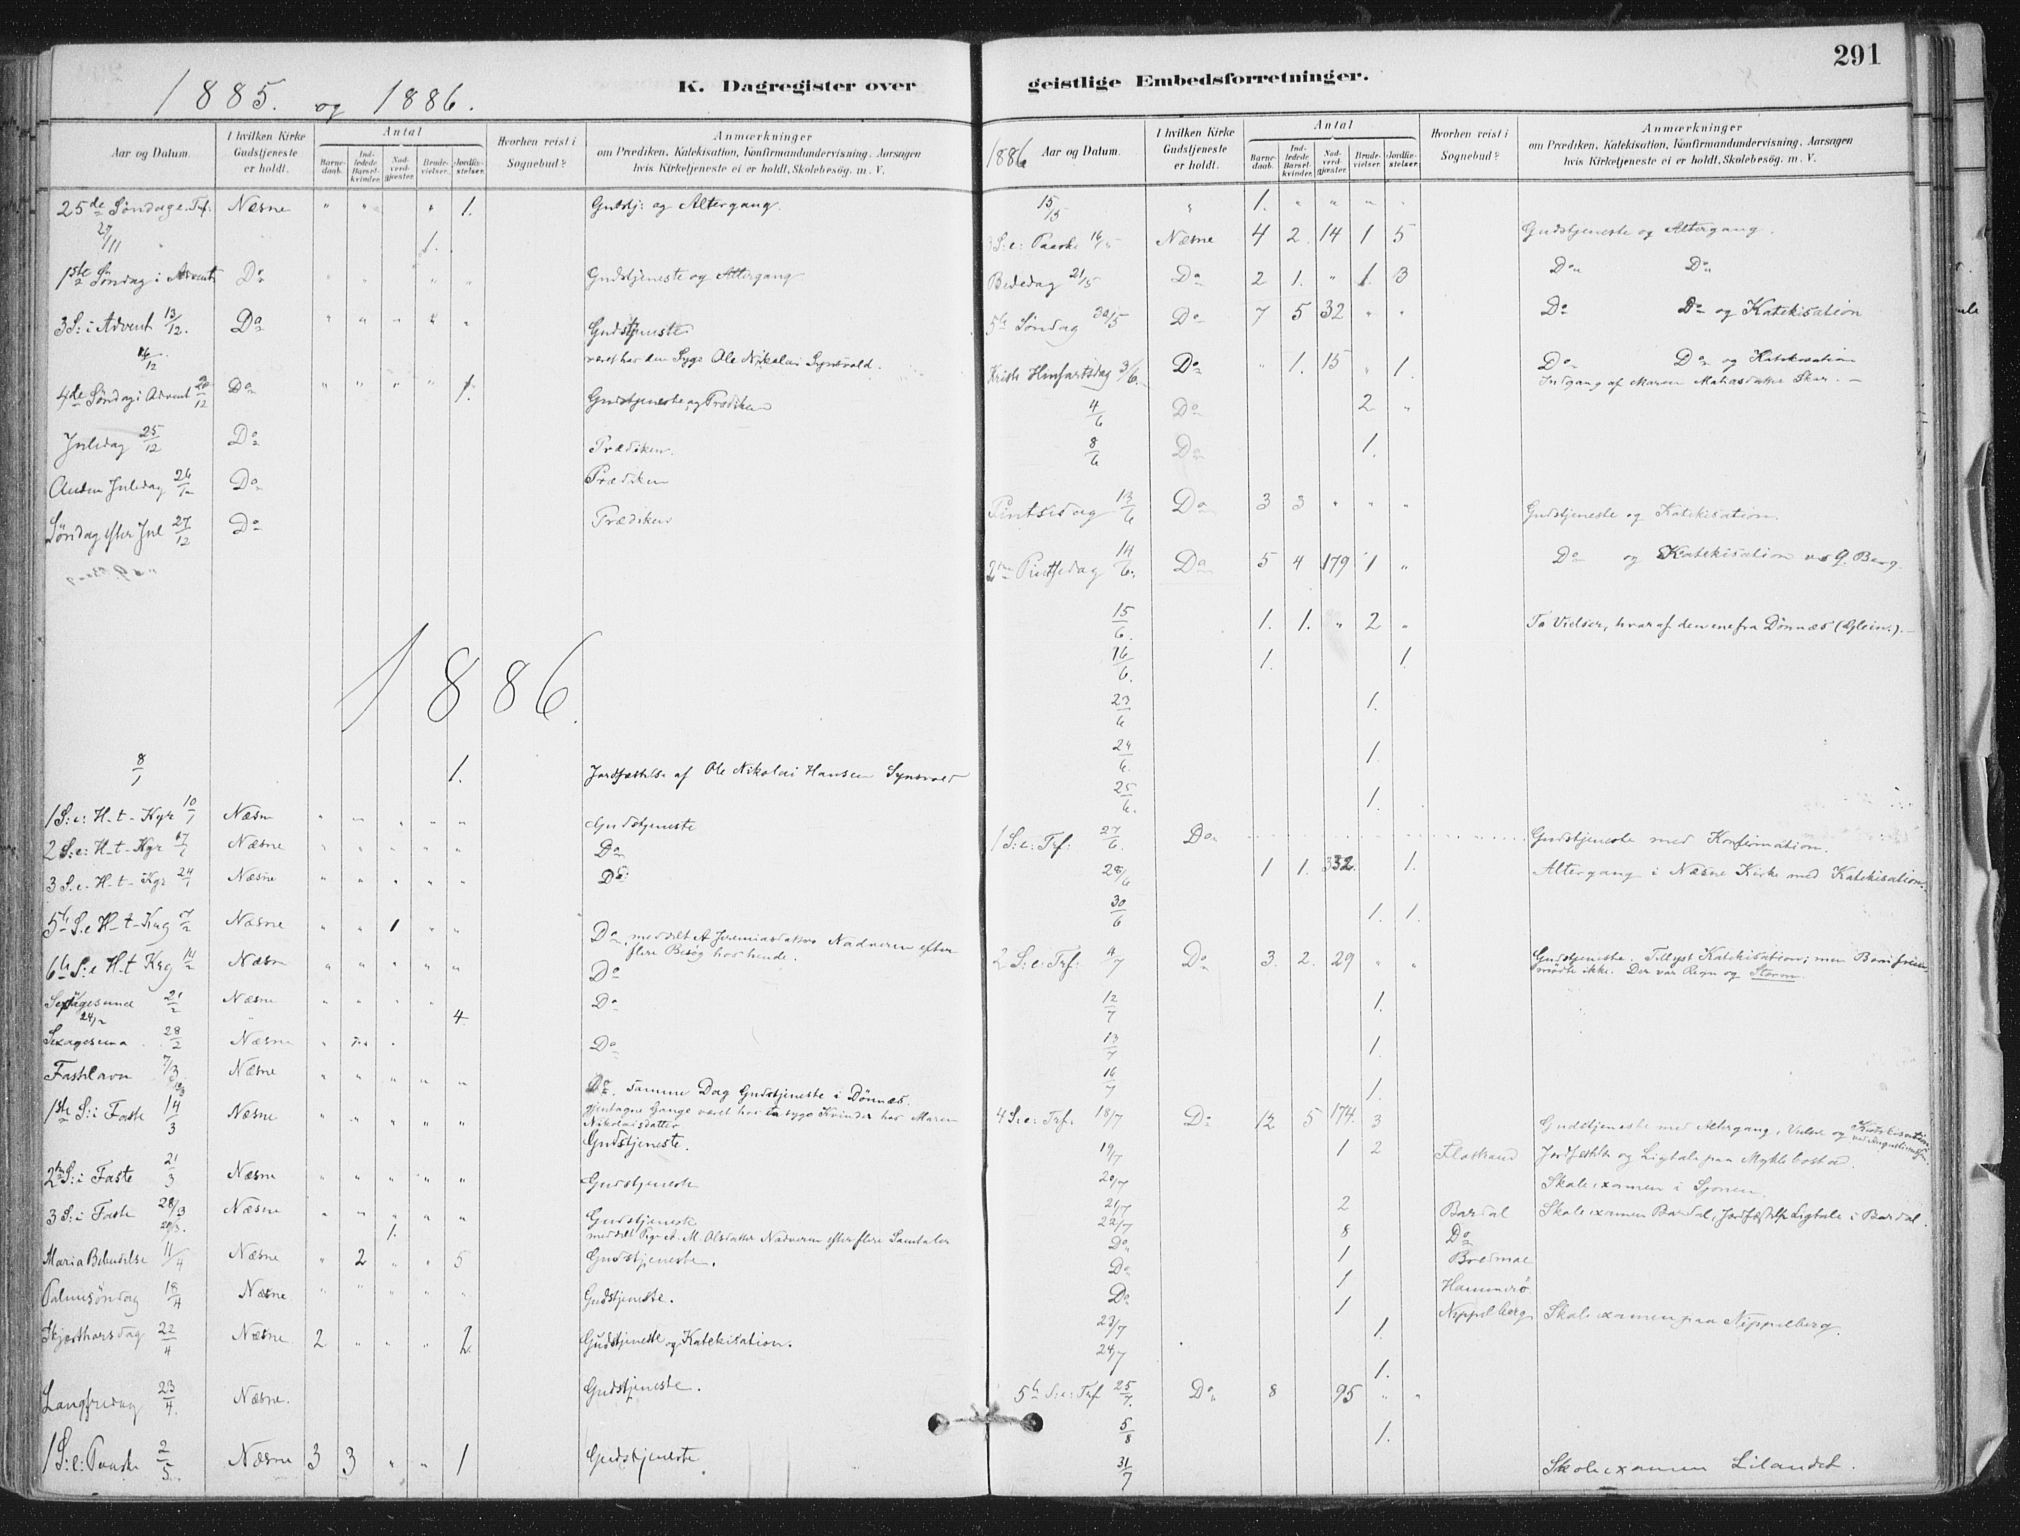 291
1885. og 1886.
K. Dagregister over geistlige Embedsforretninger.
Aar og Datum. I hvilken Kirke Gudstjeneste er holdt. Antal Barnedaab. Indledede Barselkvinder. Nadverdgjæster. Brudevielser. Jordfæstelser. Hvorhen reist i Sognebud? Anmærkninger om Prædiken, Katekisation, Konfirmandundervisning, Aarsagen hvis Kirketjeneste ei er holdt, Skolebesøg. m. V.
25de Søndag e. Trf: Næsne " " " 1. Gudstj: og Altergang.
27/11 1.
1ste Søndag i Advent Do " " " " Gudstjeneste og Altergang
3 S: i Advent 13/12. Do " " " " " Gudstjeneste
16/12 været hos den Syge Ole Nikolai Synsvold.
4de Søndag i Advent 20/12 Do " " " " 1. Gudstjeneste og Prædiken
Juledag 25/12 Do Prædiken.
Anden Juledag 26/12 Do Prædiken
Søndag efter Jul 27/12 Do Prædiken
1886.
8/1 1. Jordfæstelse af Ole Nikolai Hansen Synsvold
1 S: e: H-t-Kgr 10/1 Næsne " " " " " Gudstjeneste
2 S: e: H-t-Kgr 17/1 Næsne " " " " " Do
3 S. e. H-t-Kgr 24/1 Næsne " " " " " Do
5te S. e H-t-Krg 7/2 Næsne " " 1 " " Do, meddelt A Jeremiasdatter Nadveren efter
flere Besøg hos hende.
6te S: e H.t Krg 14/2 Næsne " " " " " Do
21/2 Næsne " " " " Do
24/2 " 4.
Sexagesima 28/2 Næsne " " " Do
Fastelavn 7/3 Næsne " " " " " Do. samme Dag Gudstjeneste i Dønnæs.
gjentagne Gange været hos Maren
Nikolaisdatter
1ste S: i Faste 14/3 Næsne " " " " " Gudstjeneste.
2den S: i Faste 21/3 Næsne " " " " " Gudstjeneste
3 S: i Faste 28/3 Næsne " " " " " Gudstjeneste
1. meddelt M. Olsdatter Nadveren efter flere Samtaler
Maria Bebudelse 11/4 Næsne " 2 " " 5 Gudstjeneste.
Palmesöndag 18/4 Næsne " " " " " Gudstjeneste.
Skjærthorsdag 22/4 Næsne. 2 " " " 2. Gudstjeneste og Katekisation.
Langfredag 23/4. Næsne. Gudstjeneste.
1 S: e: Paaske 2/5. Næsne 3 3 " " 1 Gudstjeneste
1886 Aar og Datum. I hvilken Kirke Gudstjeneste er holdt. Antal Barnedaab. Indledede Barselkvinder. Nadverdgjæster. Brudevielser. Jordfæstelser. Hvorhen reist i Sognebud? Anmærkninger om Prædiken, Katekisation, Konfirmandundervisning, Aarsagen hvis Kirketjeneste ei er holdt, Skolebesøg. m. V.
15/5 " 1. " " " "
3 S: e: Paaske 16/5 Næsne 4 2. 14 1 5 Gudstjeneste og Altergang.
Bededag 21/5 Do 2 1. " 1. 3 Do Do
5te Søndag 30/5 Do 7 5 32 " " Do Do og Katekisation
Kristi Himfartsdag 3/6. Do " 1. 15 " 1. Do Do og Katekisation
Indgang af Maren Matiasdatter Skar. —
4/6 Do 2 "
8/6 Do 1.
Pintsedag 13/6 Do 3 3 " " " Gudstjeneste og Katekisation.
2den Pintsedag 14/6. Do 5 4 179 1 " Do og Katekisation v. Berg.
15/6. 1. 1. " 2 " To Vielser, hvoraf den ene fra Dønnæs (Glein.). —
16/6. 1. 1.
23/6 1.
24/6. 1.
25/6. 1.
1 S: e: Trf: 27/6. Do Gudstjeneste med Konfirmation.
28/6 1 1. 332. 1. Altergang i Næsne Kirke med Katekisation.
30/6 1. 1.
2 S: e: Trf: 4/7 Do 3. 2. 29 " " Gudstjeneste. Tillyst Katekisation; men
mødte ikke. Der var Regn og Storm.
12/7 1.
13/7 1.
16/7 1.
4 S: e: Trf: 18/7 Do 12 5 174. 3 Gudstjeneste med Altergang, Vielse og Katekisation
19/7 1 2 Flostrand Jordfæstelse og Ligtale paa Myklebostad.
20/7 Skoleexamen i Sjonen.
21/7 2 Bardal Skoleexamen Bardal, Jordfæstelse Ligtale i Bardal.
22/7 8 Do
Do 1 Bredmal
Do 1 Hammerö
Do 1 Nippelberg Skoleexamen paa Nippelberg.
23/7 1.
24/7 1.
5te S: e: Trf 25/7. Do 8 95 " "
5/8 1.
31/7 Skoleexamen Lilandet.